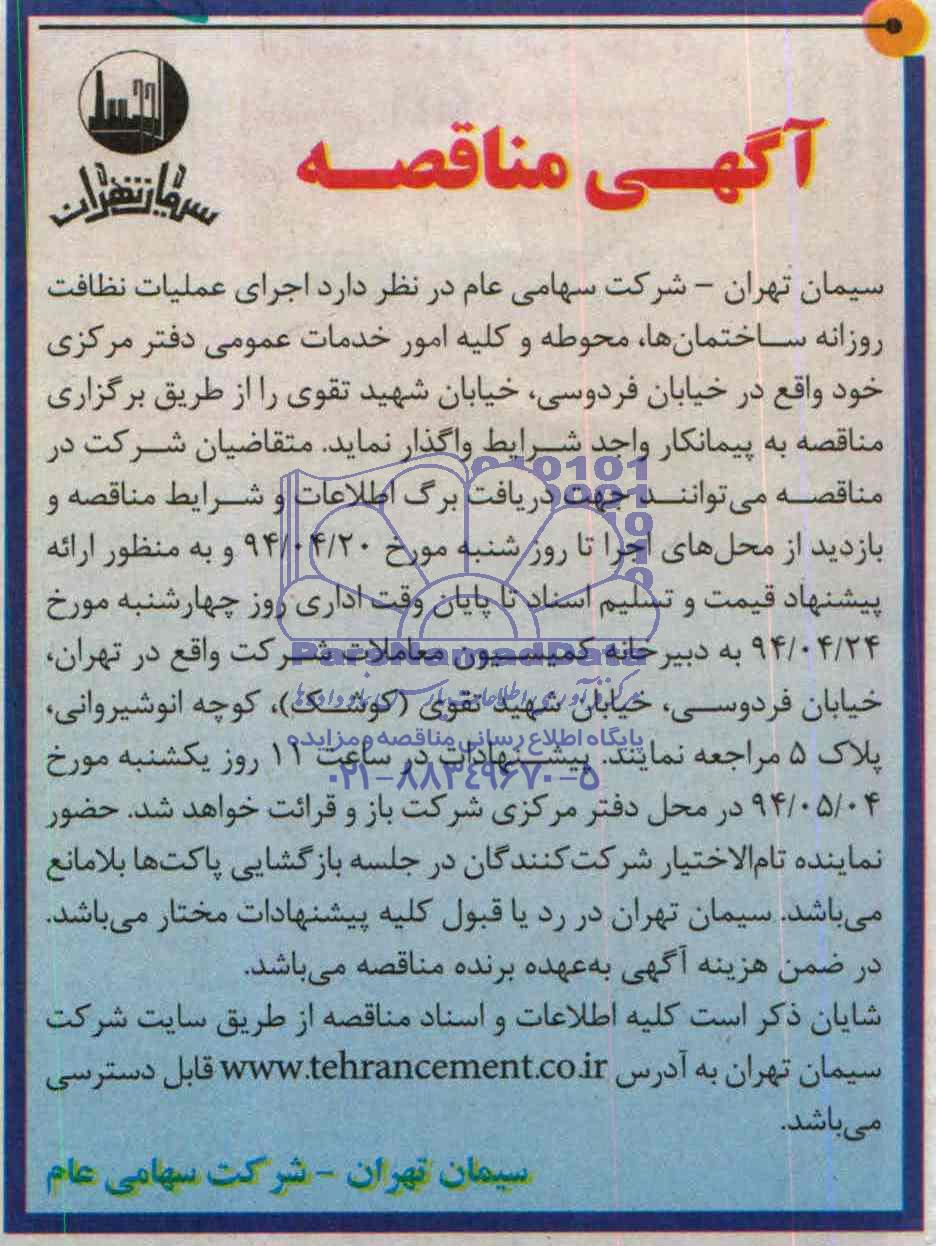 آگهی مناقصه
سیمان تهران
سیمان تهران - شرکت سهامی عام در نظر دارد اجرای عملیات نظافت
روزانه ساختمان‌ها، محوطه و کلیه امور خدمات عمومی دفتر مرکزی
خود واقع در خیابان فردوسی، خیابان شهید تقوی را از طریق برگزاری
مناقصه به پیمانکار واجد شرایط واگذار نماید. متقاضیان شرکت در
مناقصه می‌توانند جهت دریافت برگ اطلاعات و شرایط مناقصه و
بازدید از محل‌های اجرا تا روز شنبه مورخ ۹۴/۰۴/۲۰ و به منظور ارائه
پیشنهاد قیمت و تسلیم اسناد تا پایان وقت اداری روز چهارشنبه مورخ
۹۴/۰۴/۲۴ به دبیرخانه کمیسیون معاملات شرکت واقع در تهران،
خیابان فردوسی، خیابان شهید تقوی (کوشک)، کوچه انوشیروانی،
پلاک ۵ مراجعه نمایند. پیشنهادات در ساعت ۱۱ روز یکشنبه مورخ
۹۴/۰۵/۰۴ در محل دفتر مرکزی شرکت باز و قرائت خواهد شد. حضور
نماینده تام‌الاختیار شرکت‌کنندگان در جلسه بازگشایی پاکت‌ها بلامانع
می‌باشد. سیمان تهران در رد یا قبول کلیه پیشنهادات مختار می‌باشد.
در ضمن هزینه آگهی به‌عهده برنده مناقصه می‌باشد.
شایان ذکر است کلیه اطلاعات و اسناد مناقصه از طریق سایت شرکت
سیمان تهران به آدرس www.tehrancement.co.ir قابل دسترسی
می‌باشد.
سیمان تهران - شرکت سهامی عام
ParsNamadData
پایگاه اطلاع رسانی مناقصه و مزایده
۰۲۱-۸۸۳۴۹۶۷۰-۵